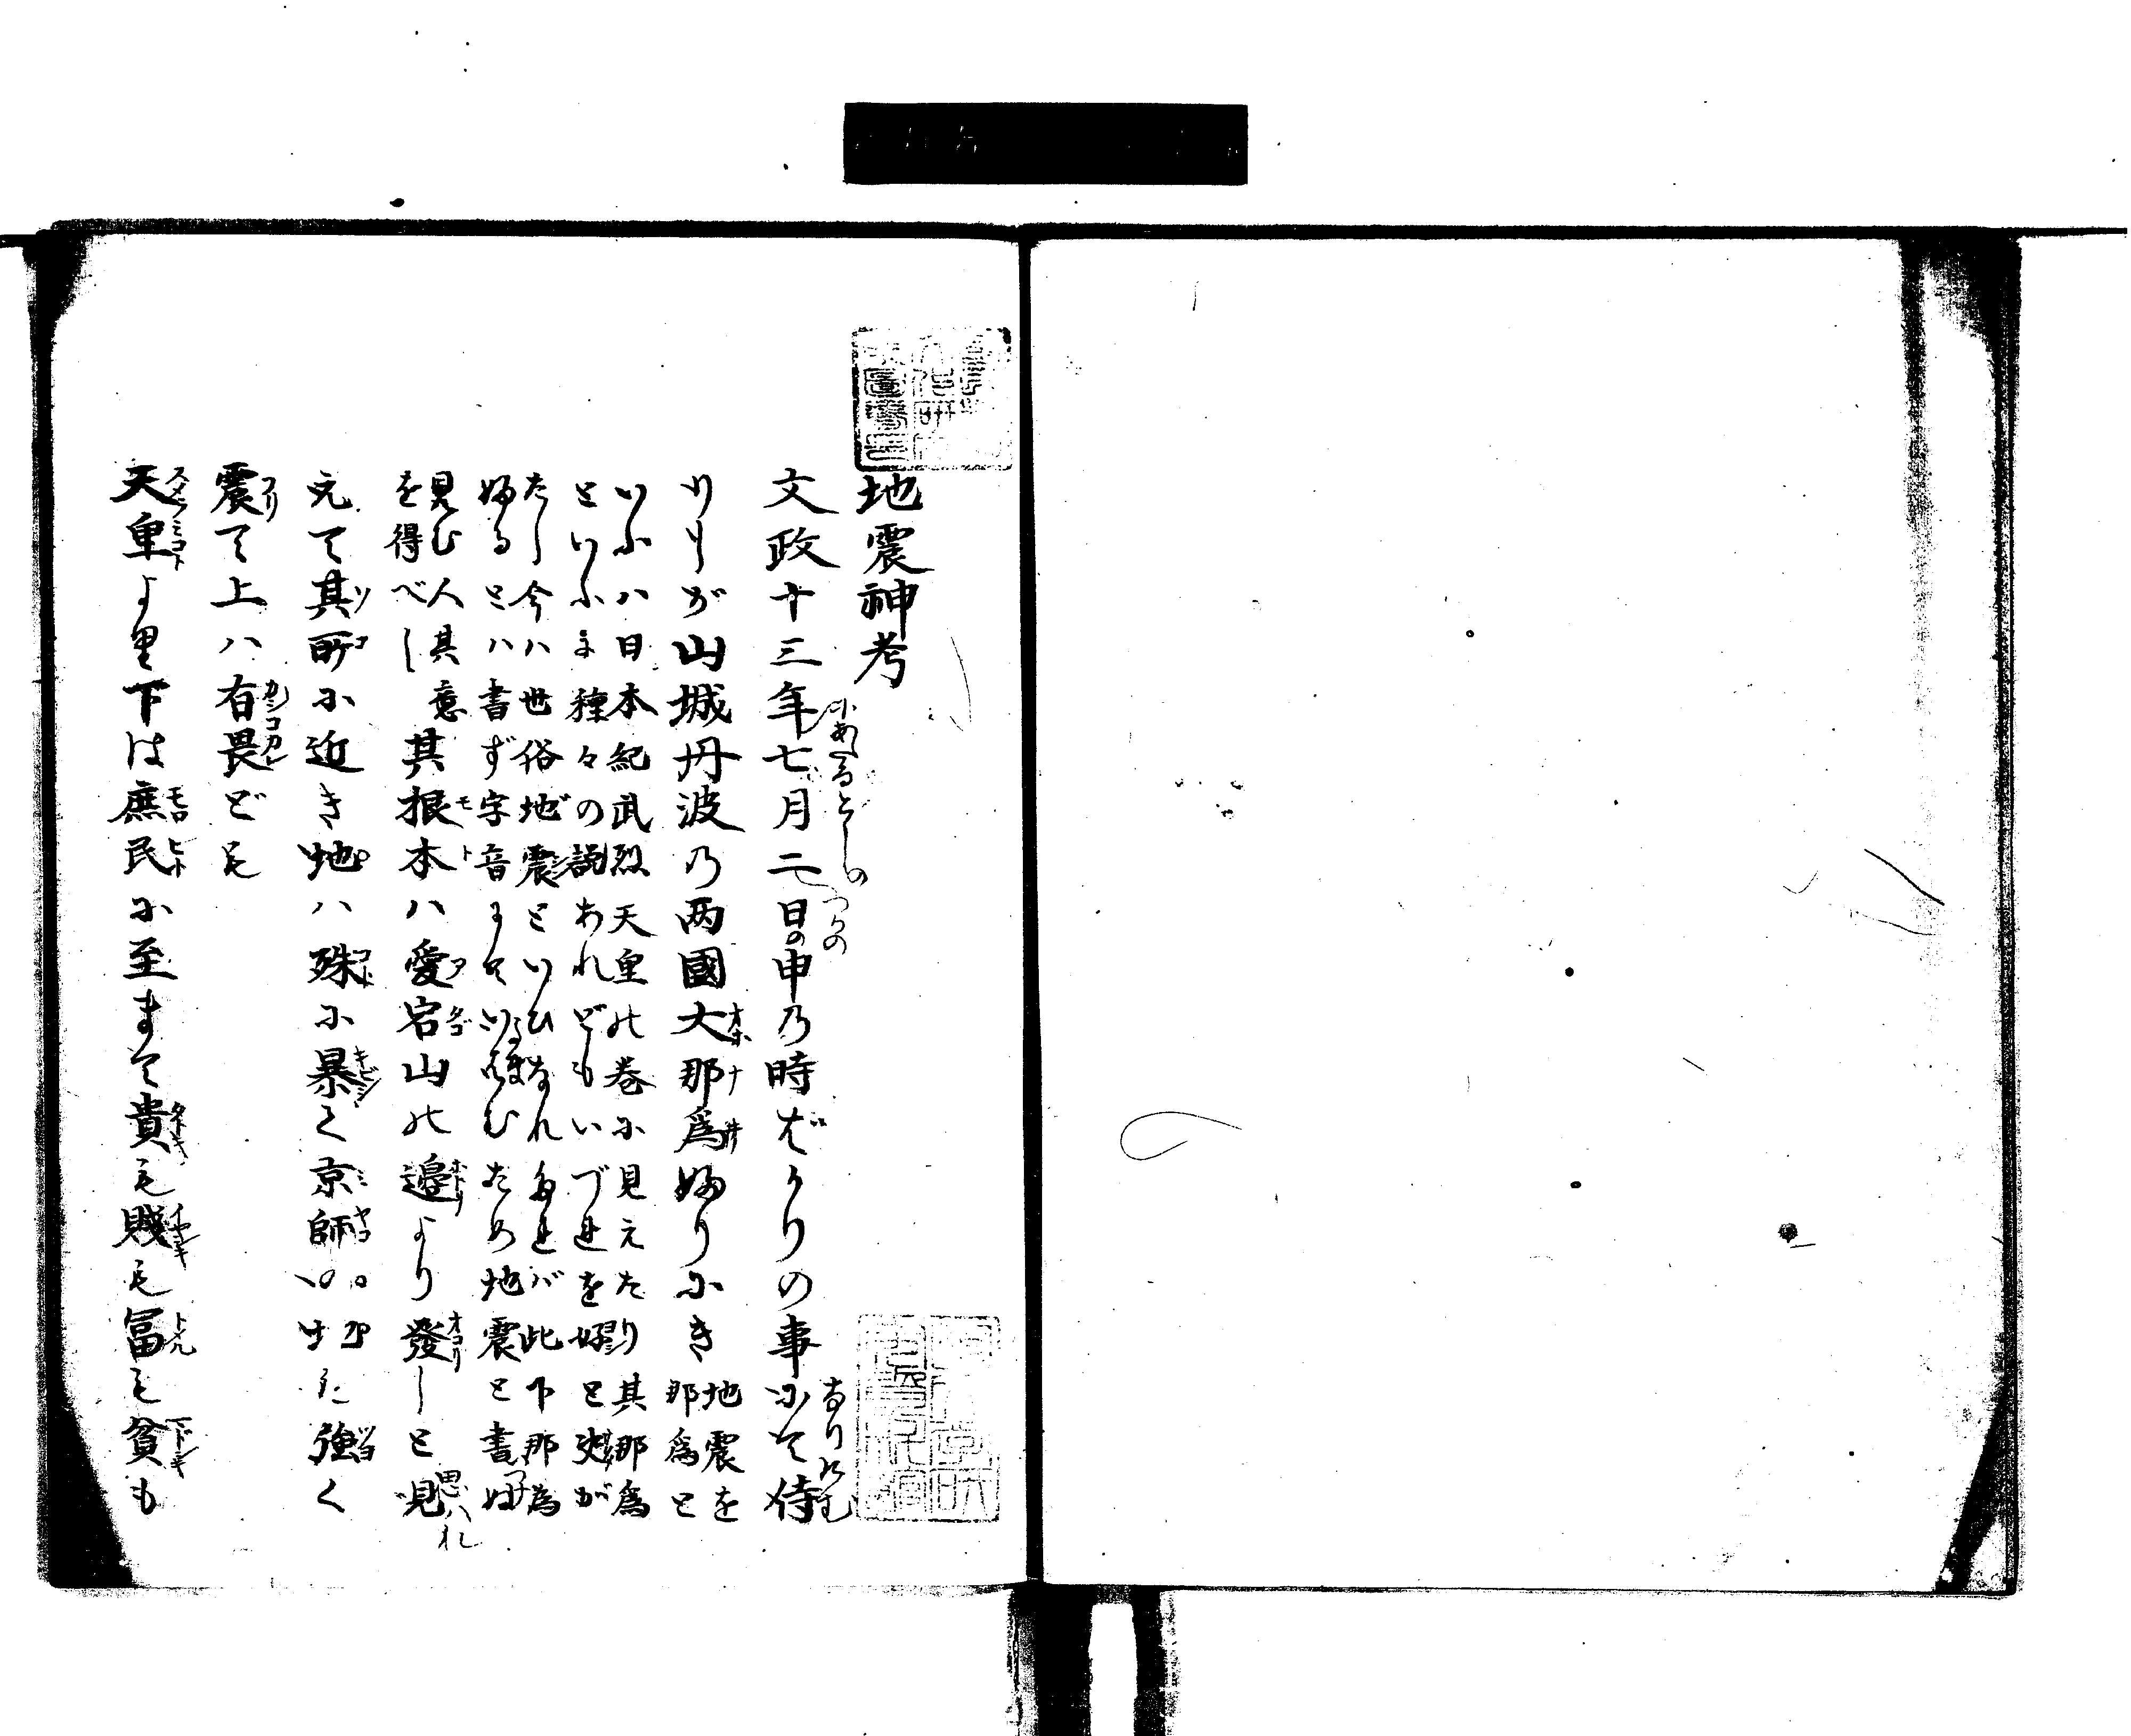 地震神考
文政十三年七月二日の申乃時ばかりの事にて侍
りしが山城丹波乃両國大那為ふりにき 地震を
那為と
いふハ日本紀武烈天皇の巻に見えたり其那為
といふに種々の説あれどもいづれを
たし今ハ世俗地震といひなれたれバ此下那為
ふるとハ書ず字音にていはむため地震と書
見む人其意
を得べし 其根本ハ愛宕山の邊より發しと見
元て其所に近き地ハ殊に暴く京師 強く
震て上ハ有畏ども
天皇より里下は庶民に至まて貴も賤も冨も貧も